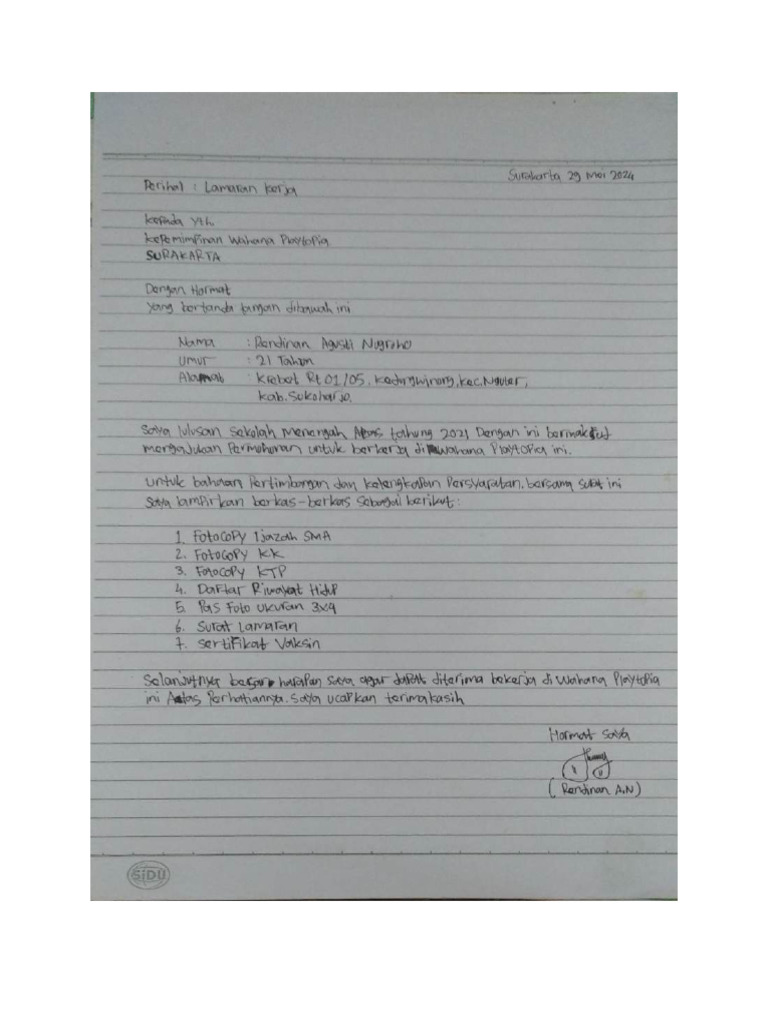 Surakarta 29 Mei 2024
Perihal : Lamaran Kerja
Kepada Yth
Kepemimpinan Wahana Playtopia
SURAKARTA
Dengan Hormat
Yang bertanda tangan dibawah ini
Nama : Rendinan Agusti Nugroho
Umur : 21 Tahun
Alamat : Krebet Rt 01/05, Kedungwinong, Kec. Nguter,
Kab. Sukoharjo.
Saya lulusan Sekolah Menengah Atas tahung 2021 Dengan ini bermaksud
mengajukan Permohonan untuk berkerja di Wahana Playtopia ini.
Untuk bahaan Pertimbangan dan kelengkapan Persyaratan, bersama surat ini
Saya lampirkan berkas-berkas sebagai berikut :
1. Fotocopy Ijazah SMA
2. Fotocopy KK
3. Fotocopy KTP
4. Daftar Riwayat Hidup
5. Pas Foto Ukuran 3x4
6. Surat Lamaran
7. Sertifikat Vaksin
Selanjutnya besar harapan saya agar dapat diterima bekerja di Wahana Playtopia
ini Atas Perhatiannya. Saya ucapkan terimakasih
Hormat Saya
( Rendinan A.N )
SiDU